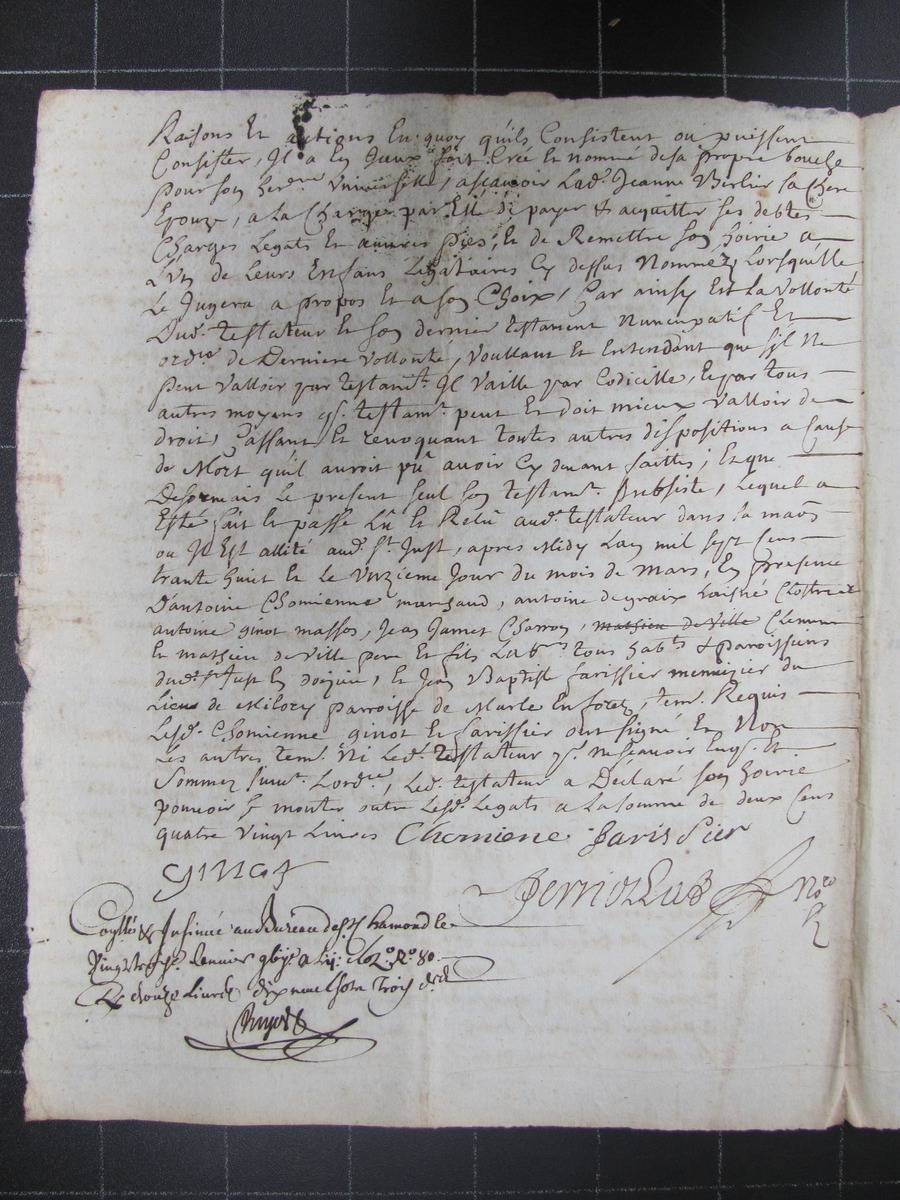 Raisons Et actions En quoy quils Consistent ou puissent
Consister, Il a En Iceux fait Creé Et nommé desa propre bouche
pour son her.ere Universelle, ascavoir Lad.e Jeanne Berlier sa Chere
Epouze, a La Charge par Elle de payer & acquitter ses debtes
Charges Legats Et œuvres Pies, Et de Remettre son hoirie a
L'un de Leurs Enfans Legataires Cy dessus Nommez, Lorsquelle
Le Jugera a propos Et a son Choix, Car ainsy Est La Vollonté
Dud. testateur Et son dernier testament Nuncupatif Et
ord.re de Derniere Vollonté, Voullant Et Entendant que s'il Ne
peut Valloir par testam.t Il Vaille par Codicille, Et par tous
autres moyens q. testam.t peut Et doit mieux Valloir de
droit, Cassant Et revoquant toutes autres dispositions a Cause
de Mort qu'il auroit pû avoir Cy devant faittes; Et que
Desormais Le present seul son testam.t subsiste, Lequel a
Esté fait Et passé Lû Et Relû aud. testateur dans sa maon
ou Il Est allité aud. St. Just, apres Midy Lan mil sept Cens
trante huict Et Le Unzieme Jour du mois de Mars, En presence
D'antoine Chomienne marchand, antoine degraix Laisné
antoine ginot masson, Jean Jamet Charron, mathieu de Ville
Et mathieu de Ville pere Et fils Lab.rs tous hab.ts & parroissiens
dud. St. Just En doizieu, Et Jean Baptiste farissier menuizier du
Lieu de Parroisse de Marle En forez, tem. Requis
Lesd. Chomienne ginot Et farissier ont signé Et Non
Les autres tem. Ni Led. testateur p. ne scavoir Enq. Et
Sommez suiv.t Lord.ce, Led. testateur a Déclaré son hoirie
pouvoir se monter outre Lesd. Legats a La somme de deux Cens
quatre Vingt Livres Chomiene farissier
ginot
Nore
Conllé & Insinué au Bureau de St Chamond le
Ro 80
Rx douze Livres dix neuf sols trois d.